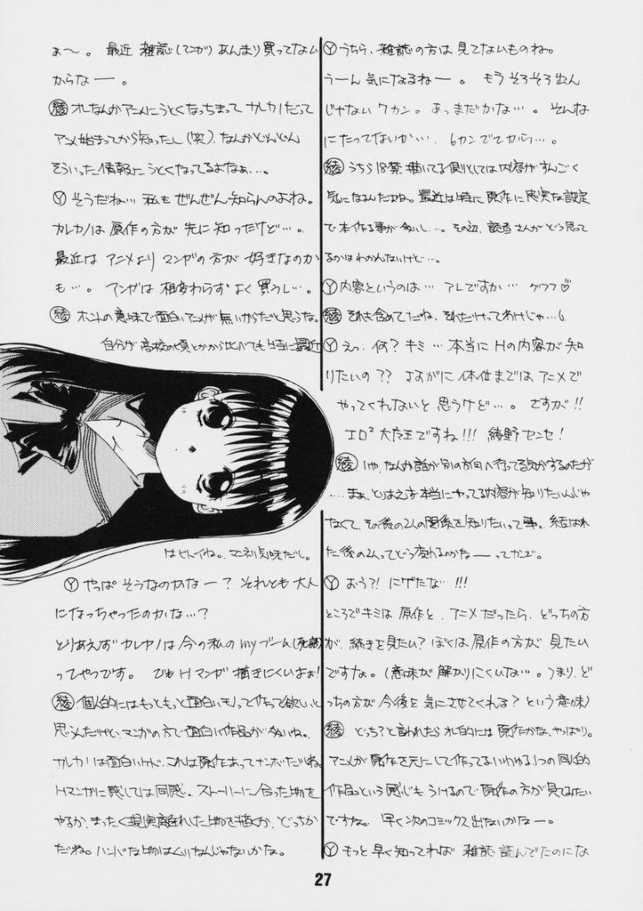 ぁ〜。最近 雑誌(LaLaとか) あんまり買ってないからなー。
綾 オレなんかアニメにうとくなっちまって カレカノだって
アニメ始まってから知ったし(笑)。なんかどんどん
そういった情報にうとくなってるよなぁ…。
Y そうだね… 私も ぜんぜん知らんのよね。
カレカノは 原作の方が 先に知ったけど…。
最近は アニメより マンガの方が 好きなのか
も…。マンガは 相変わらず よく買うし…。
綾 ホントの意味で面白いアニメが無いからだと思うな。
自分が高校の頃とかから比べても 特に最近
はヒドイね。マンネリ気味だし。
Y やっぱ そうなのかなー? それとも 大人
になっちゃったのかな…?
とりあえず カレカノは 今の 私の myブーム(死語)
ってやつです。
綾 個人的には もっともっと面白いモノって作って欲しいと
思うんだけど、マンガの方で面白い作品が多いね。
カレカノは面白いけど、これは原作あってナンボだしね。
Hマンガに関しては同感。ストーリーに合った物を
やるか、まったく現実離れした物を描くか、どっちか
だね。ハンパな物はいけないんじゃないかな。
Y うちら、雑誌の方は 見てないものね。
うーん 気になるねー。もう そろそろ 出ん
じゃない 7カン。あっ まだかな…。そんな
にたってないか…、6カンでてから…。
綾 うちら 18禁 描いてる側としては内容がすんごく
気になるんだよね。最近は特に、原作に忠実な設定
で本作る事が多いし…。その辺、読者さんがどう思って
るかは わかんないけど…。
Y 内容というのは… アレですか… グフフ♡
綾 それも含めてだね、それだけってわけじゃ…。
Y えっ、何? キミ… 本当に Hの内容が 知
りたいの?? さすがに 体位までは アニメで
やってくれないと 思うけど…。さすが!!
エロ²大王ですね!!! 綾野センセ!
綾 いや、なんか話が別の方向へ行ってる気がするのだが
…まぁ、とりあえず本当にヤってる内容が知りたいんじゃ
なくて、その後の2人の関係を知りたいって事。結ばれ
た後の2人ってどう変わるのかなーってカンジ。
Y おう?! にげたな…!!!
ところで キミは 原作と、アニメだったら、どっちの方
が、続きを見たい? ぼくは 原作の方が 見たい
ですな。(意味が 解かりにくいな…。つまり、ど
っちの方が 今後を 気にさせてくれる? という意味)
綾 どっち?と言われたら オレ的には 原作かな、やっぱり。
アニメが原作を元にして作ってるいわゆる1つの同人的
作品という感じも うけるので 原作の方が見てみたい
ですね。早く次のコミックス出ないかなー。
Y もっと 早く知ってれば 雑誌 読んでたのにな
27